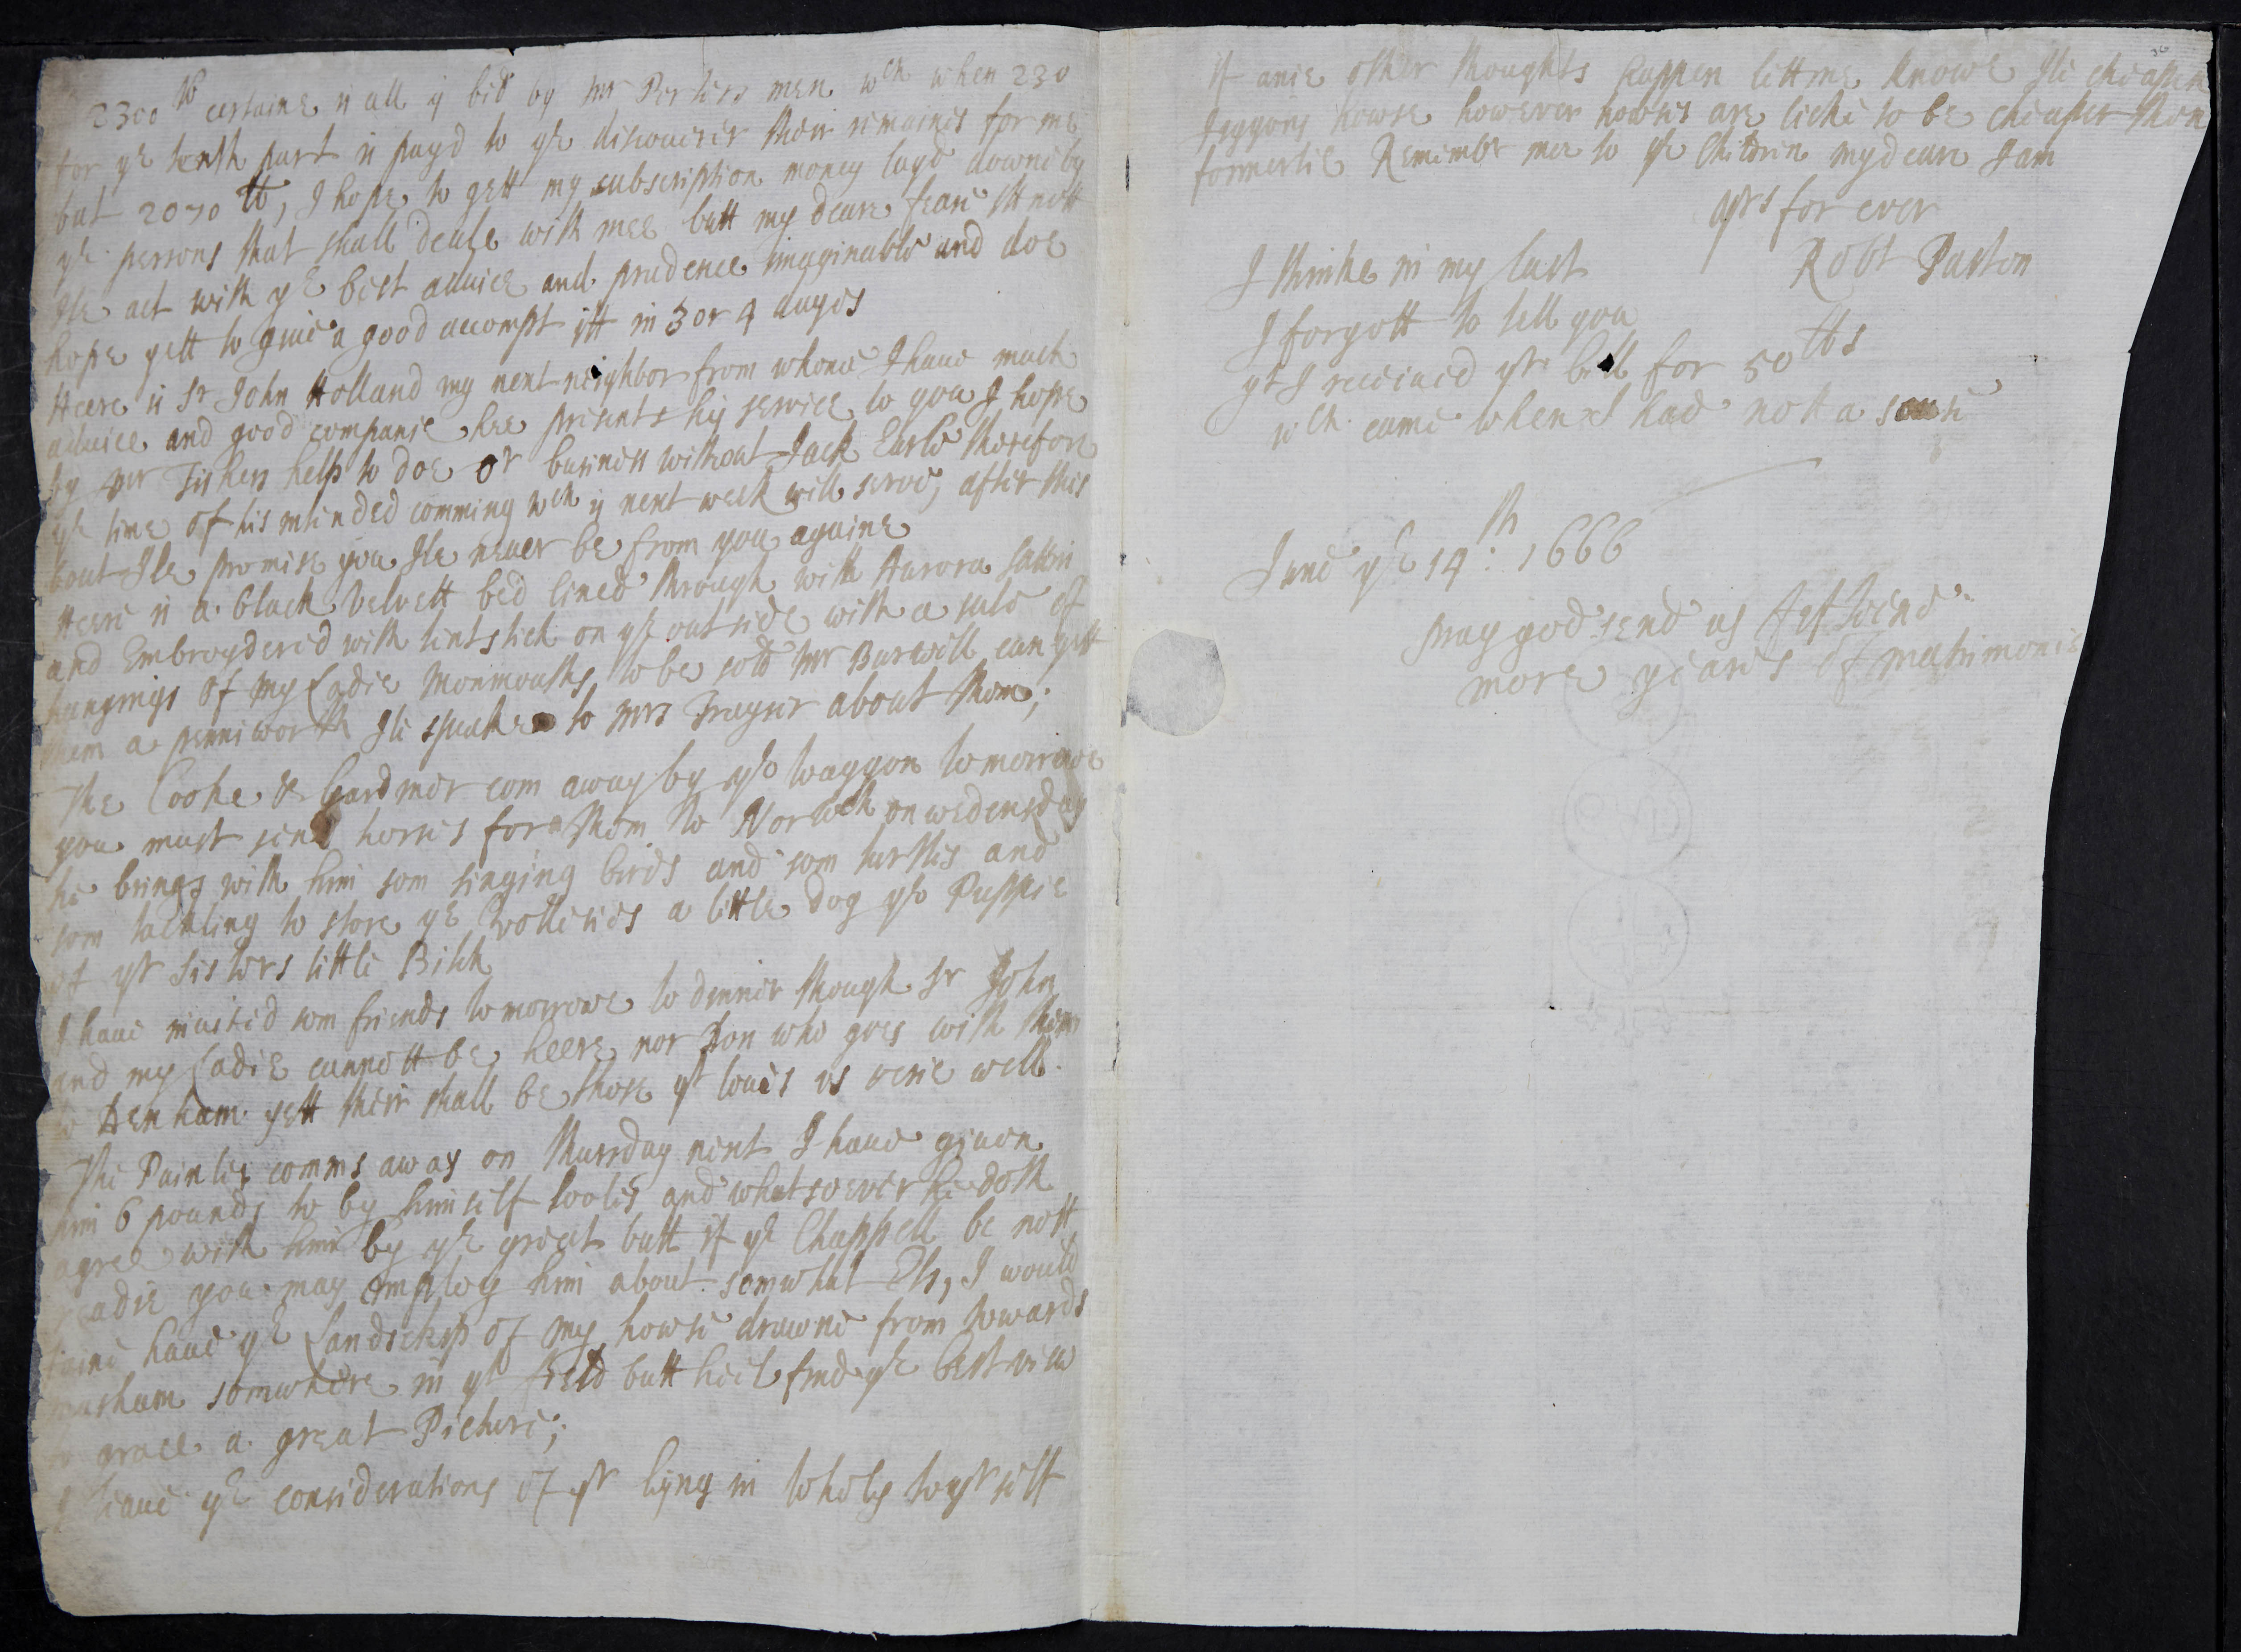 2300 lb certaine is all is bid by Mr Perkins men wch when 230
for ye tenth part is payd to ye discouerer their remaines for me
but 2070 lb, I hope to gett my subscription money layd downe by
ye persons that shall deale with mee butt my deare feare itt nott
Ile act with ye best aduice and prudence imaginable and doe
hope yett to giue a good accompt itt in 3 or 4 dayes
Heere is Sr John Holland my next neighbor from whome I haue much
aduice and good companie hee presents his seruice to you I hope
by Mr Fishers help to doe or busines without Jack Earle therefore
ye time of his intended comming wch is next week will serue, after this
bout Ile promise you Ile neuer be from you againe
Heere is a black veluett bed lined through with Aurora sattin
and Embroydered with tentstich on ye outside with a sute of
hangings of my Ladie Monmouths to be sold Mr Burwell can gett
them a penniworth Ile speake to Mrs Frayser about them;
The Cooke & Gardinor com away by ye waggon tomorrowe
you must send horses for them to Norwch on wedensday
he brings with him som singing birds and som turtles and
som tackling to store ye Volleries a little dog ye Puppie
of yr Sisters little Bitch
I haue inuited som friends tomorrowe to dinner though Sr John
and my Ladie cannott be heere nor Jon who goes with them
to Denham yett their shall be those yt loues us verie well
The Painter comms away on thursday next I haue giuen
him 6 pounds to by himself tooles and whatsoever he doth
agree with him by ye great butt if ye Chappell be nott
readie you may employ him about somwhat Els, I would
faine haue ye Landschip of my howse drawne from towards
marsham somwhere in ye field butt hee'l find ye best view
a great Picture;
I leaue ye considerations of yr lying in wholy to yr self
if anie other thoughts happen lett me knowe Ile cheapen
Jeggons howse however howses are like to be cheaper then
formerlie Remember mee to ye Children my deare I am
yrs for ever
Robt Paston
I thinke in my last
I forgott to tell you
yt I receiued yr bill for 50 lbs
wch came when I had nott a
June ye 14:th 1666
pray god send us
more yeares of matrimonie